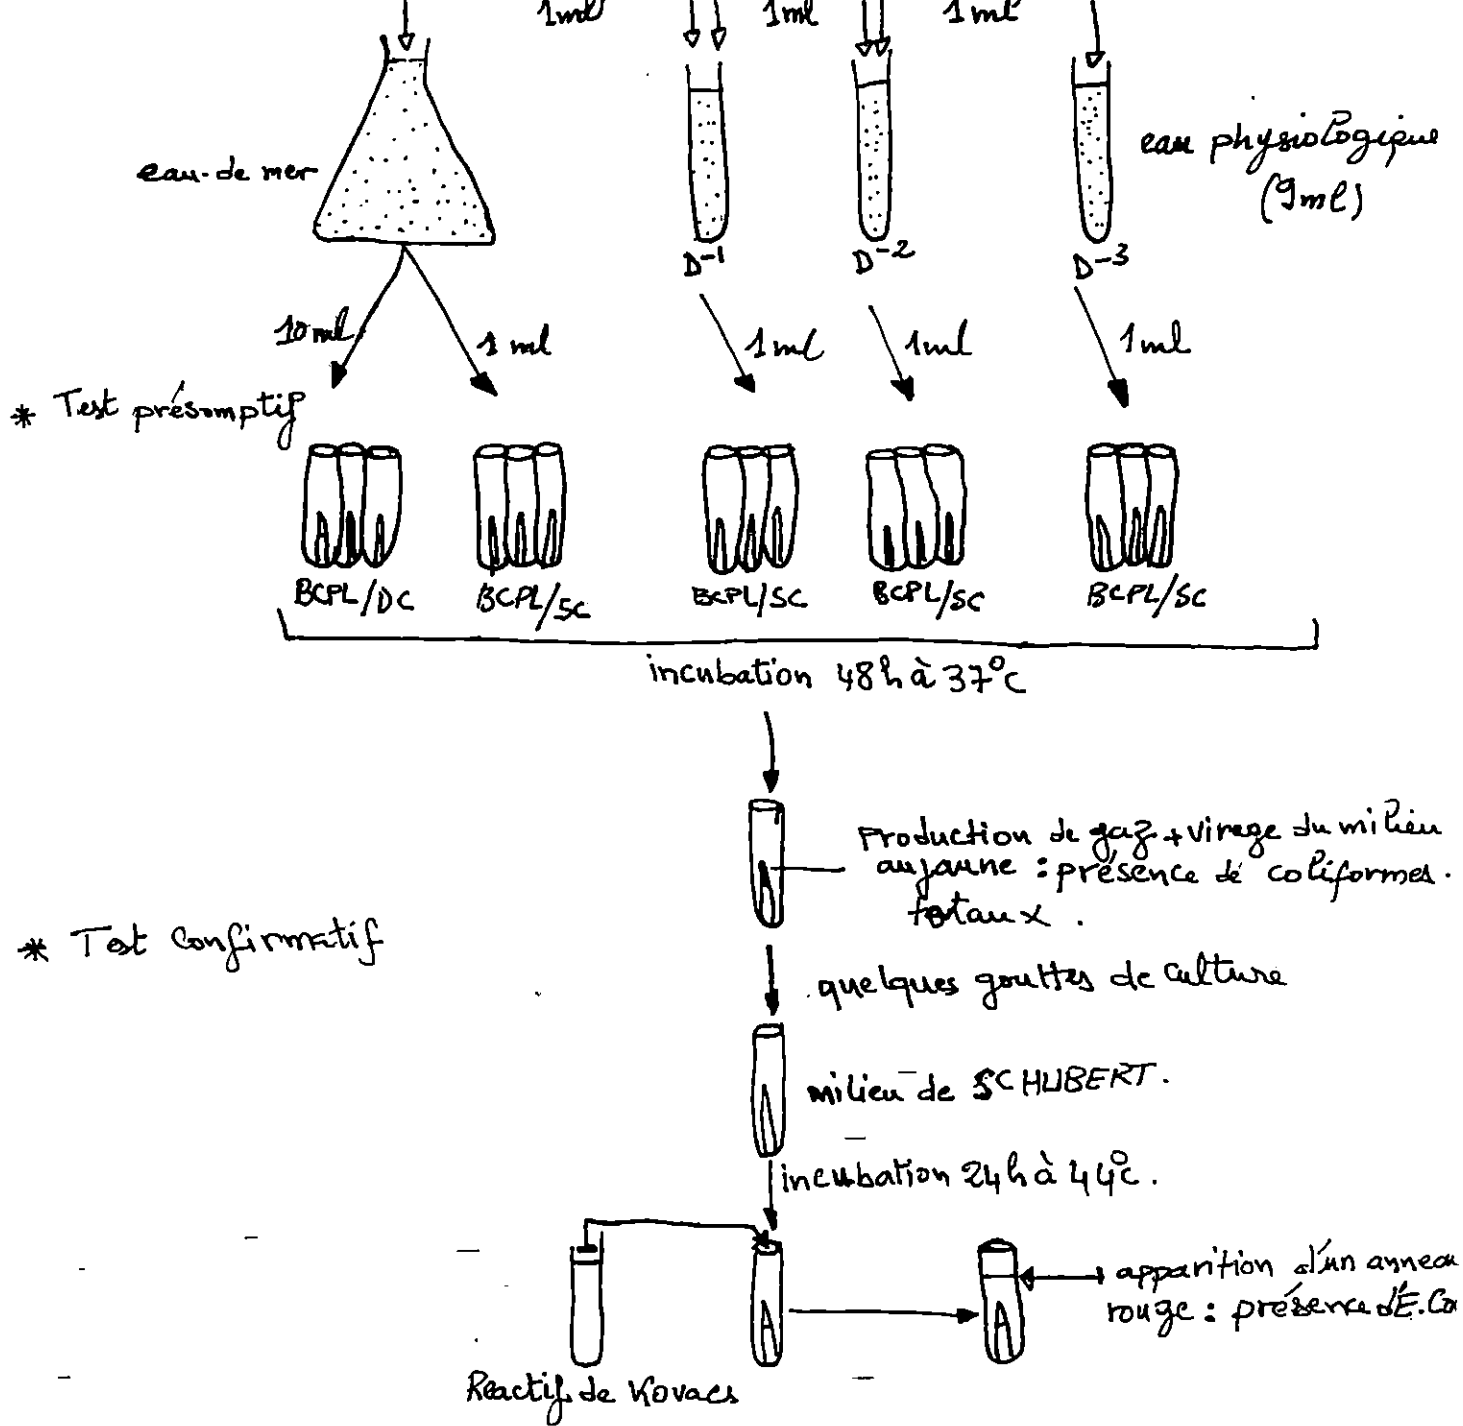 1ml 1ml 1ml
eau physiologique
(9ml)
eau de mer
D-1 D-2 D-3
10ml 1 ml 1ml 1ml 1ml
* Test présomptif
BCPL/DC BCPL/SC BCPL/SC BCPL/SC BCPL/SC
incubation 48h à 37°C
Production de gaz + virage du milieu
au jaune : présence de coliformes.
totaux .
* Test Confirmatif
quelques gouttes de culture
milieu de SCHUBERT.
incubation 24h à 44°c.
apparition d'un annea
rouge : présence d'E.Co
Reactif de Kovacs